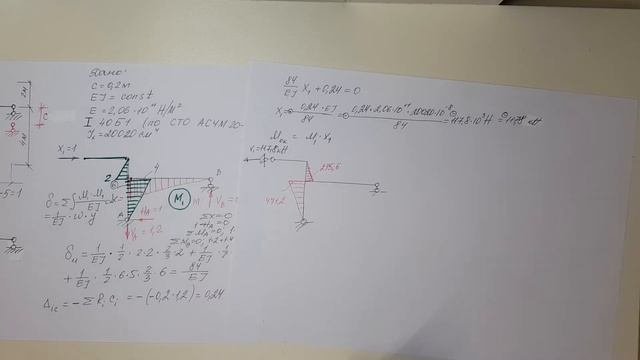 Дано:
C = 0,2м
EJ = const
E = 2,06·10¹¹ Н/м²
I 40Б1 (по СТО АСЧМ 20-
Jx = 20020 см⁴
2м
C
4м
-5=1
X₁=1
2
4
B
M₁
A
H_A=1
V_A = 1,2
Σx=0
ΣM_A=0;
= 1/EJ · ω · y
δ₁₁ = 1/EJ · 1/2 · 2·2 · 2/3 · 2 + 1/EJ ·
+ 1/EJ · 1/2 · 6·5 · 2/3 · 6 = 84/EJ
Δ₁c = - Σ Rᵢ Cᵢ = -(-0,2·1,2) = 0,24
84/EJ X₁ + 0,24 = 0
X₁ = - 0,24·EJ/84 = - 0,24·2,06·10¹¹·20020·10⁻⁸/84 = -117,8·10³ Н = -117,8 кН
M_ок = M₁·X₁
X₁=117,8кН
235,6
471,2